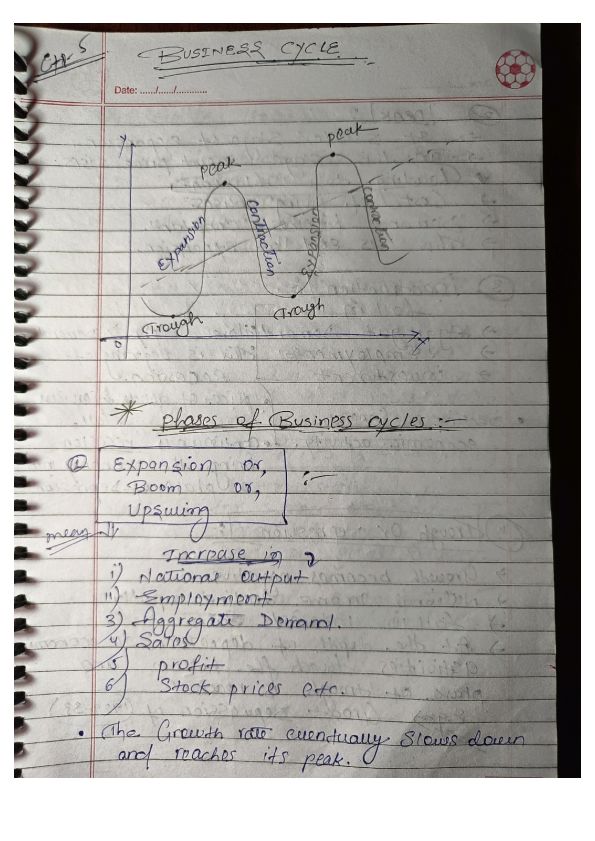 Ch-5
BUSINESS CYCLE
Date: ....../....../............
Y
Peak
Peak
Expansion
Contraction
Expansion
Contraction
Trough
Trough
0
X
Phases of Business cycles :-
① Expansion or,
Boom or,
Upswing
:-
means
Increase in
i) National output
ii) Employment
3) Aggregate Demand.
4) Sales
5) profit
6) Stock prices etc.
• The Growth rate eventually Slows down
and reaches its peak.